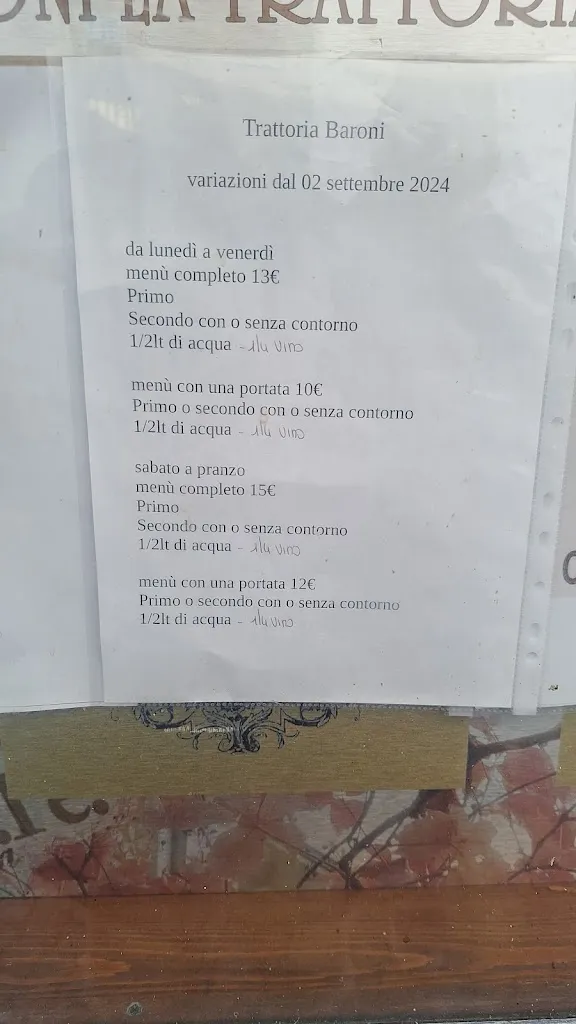 TRATTORIA
Trattoria Baroni
variazioni dal 02 settembre 2024
da lunedì a venerdì
menù completo 13€
Primo
Secondo con o senza contorno
1/2lt di acqua - 1/4 vino
menù con una portata 10€
Primo o secondo con o senza contorno
1/2lt di acqua - 1/4 vino
sabato a pranzo
menù completo 15€
Primo
Secondo con o senza contorno
1/2lt di acqua - 1/4 vino
menù con una portata 12€
Primo o secondo con o senza contorno
1/2lt di acqua - 1/4 vino